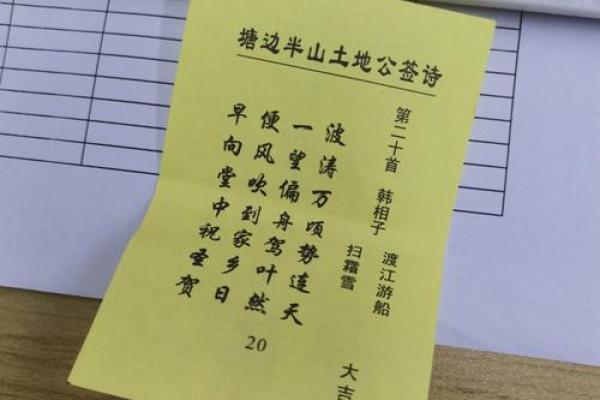 塘边半山土地公签诗
第二十首 韩相子 渡江游船
扫霜雪
大吉
波涛万顷势连天
一望偏舟驾叶然
便风吹到家乡日
早向堂中祝圣贺
20